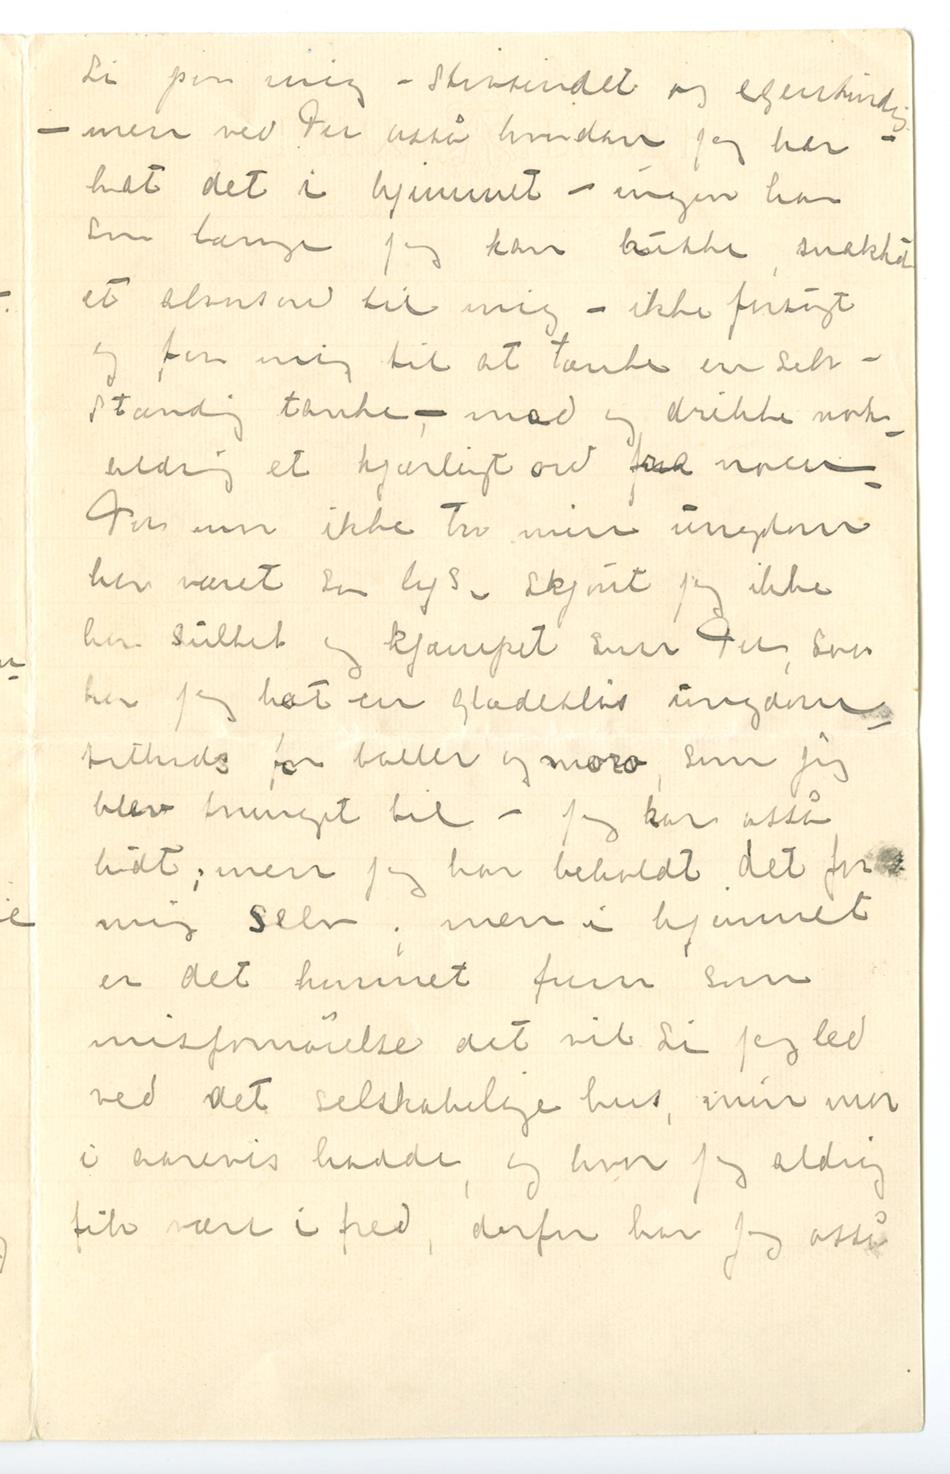 Di paa mig – stivsindet og egensindig
– men ved De osså hvordan jeg har –
hat det i hjemmet – ingen har
saa længe jeg kan huske, snakket
et alvorsord til mig – ikke forsøgt
og faa mig til at tænke en selv-
stændig tanke, – mad og drikke nok –
aldrig et kjærligt ord fra noen –
De maa ikke tro min ungdom
har været saa lys – skjønt jeg ikke
har sultet og kjæmpet som De, saa
har jeg hat en glædesløs ungdom –
tiltrods for baller og moro, som jeg
blev tvunget til – jeg har osså
lidt; men jeg har beholdt det for
mig selv; men i hjemmet
er det kommet frem som
misfornøielse det vil Di jeg led
ved det selskabelige hus, min mor
i aarevis hadde, og hvor jeg aldrig
fik være i fred, derfor har jeg osså